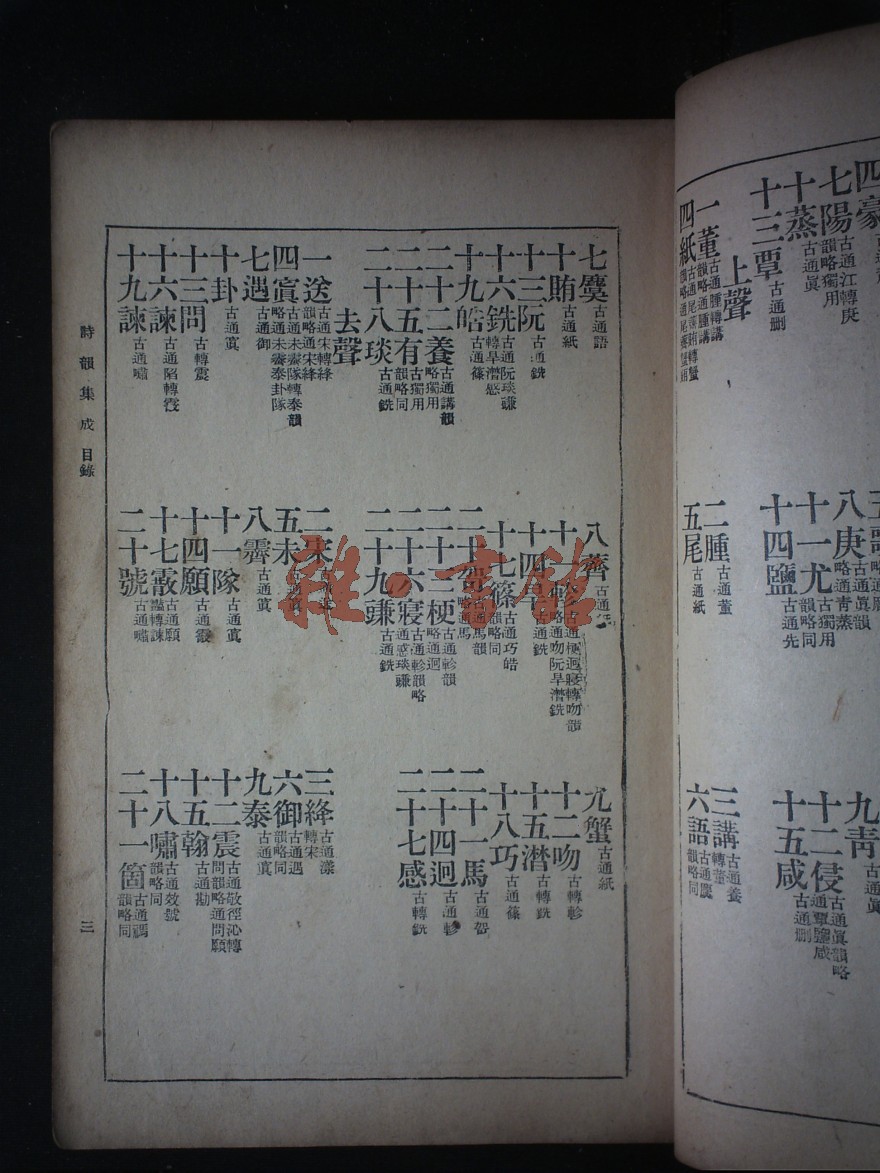 四豪
七陽古通江轉庚韻略獨用
八庚古通眞韻略通青蒸
九青古通眞
十蒸古通眞
十一尤古獨用韻略同
十二侵古通眞韻略通覃鹽咸
十三覃古通刪
十四鹽古通先
十五咸古通刪
上聲
一董古通腫轉講韻略通腫講
二腫古通董
三講古通養轉董
四紙古通尾薺賄轉蟹韻略通尾薺蟹賄
五尾古通紙
六語古通麌韻略同
七麌古通語
八薺古通紙
九蟹古通紙
十賄古通紙
十一軫古通梗迥寢轉吻韻略通吻阮旱潸銑
十二吻古轉軫
十三阮古通銑
十四旱古通銑
十五潸古轉銑
十六銑古通阮琰豏轉旱潸感
十七篠古通巧皓韻略同
十八巧古通篠
十九皓古通篠
二十哿古通馬韻略通馬
二十一馬古通哿
二十二養古通講韻略獨用
二十三梗古通軫韻略通迥
二十四迥古通軫
二十五有古獨用韻略同
二十六寢古通軫韻略通感琰豏
二十七感古轉銑
二十八琰古通銑
二十九豏古通銑
去聲
一送古通宋轉絳韻略通宋絳
二宋古通送
三絳古通漾轉宋
四寘古通未霽隊轉泰韻略通未霽泰卦隊
五未古通寘
六御古通遇韻略同
七遇古通御
八霽古通寘
九泰古通寘
十卦古通寘
十一隊古通寘
十二震古通敬徑沁轉問韻略通問願
十三問古轉震
十四願古通霰
十五翰古通勘
十六諫古通陷轉霰
十七霰古通願豔轉諫
十八嘯古通效號韻略同
十九諫古通嘯
二十號古通嘯
二十一箇古通禡韻略同
詩韻集成 目錄
三
雜·言館